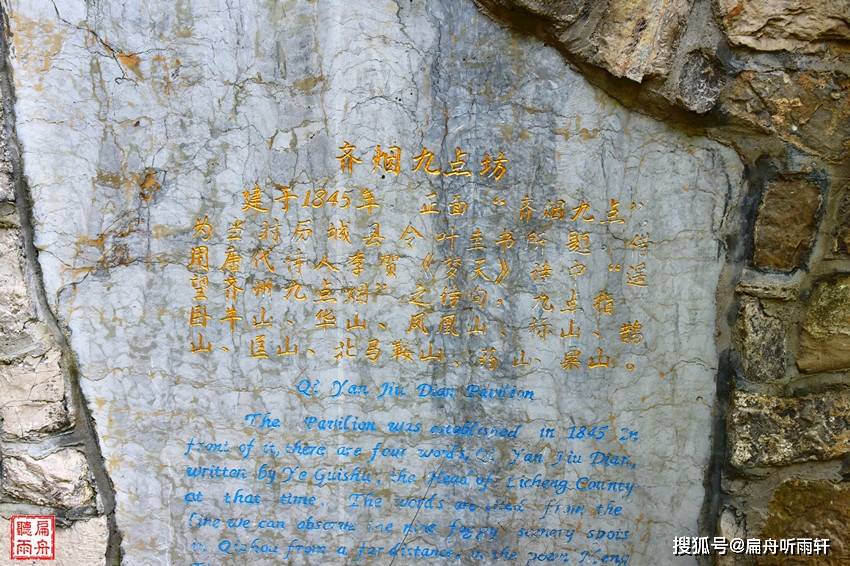 齐烟九点坊
建于1845年 正面“齐烟九点”
为当时历城县令叶圭书所题，借
用唐代诗人李贺《梦天》诗中“遥
望齐州九点烟”之 句，九点指
卧牛山、华山、凤凰山、标山、鹊
山、匡山、北马鞍山、药山、 山。
Qi Yan Jiu Dian Pavilion
The Pavilion was established in 1845 In
front of it, there are four words, Qi Yan Jiu Dian,
written by Ye Guishu, the Head of Licheng County
at that time. The words are cited from the
line we can observe the nine foggy scenery spots
in Qizhou from a far distance, in the poem Meng
扁舟聽雨
搜狐号@扁舟听雨轩